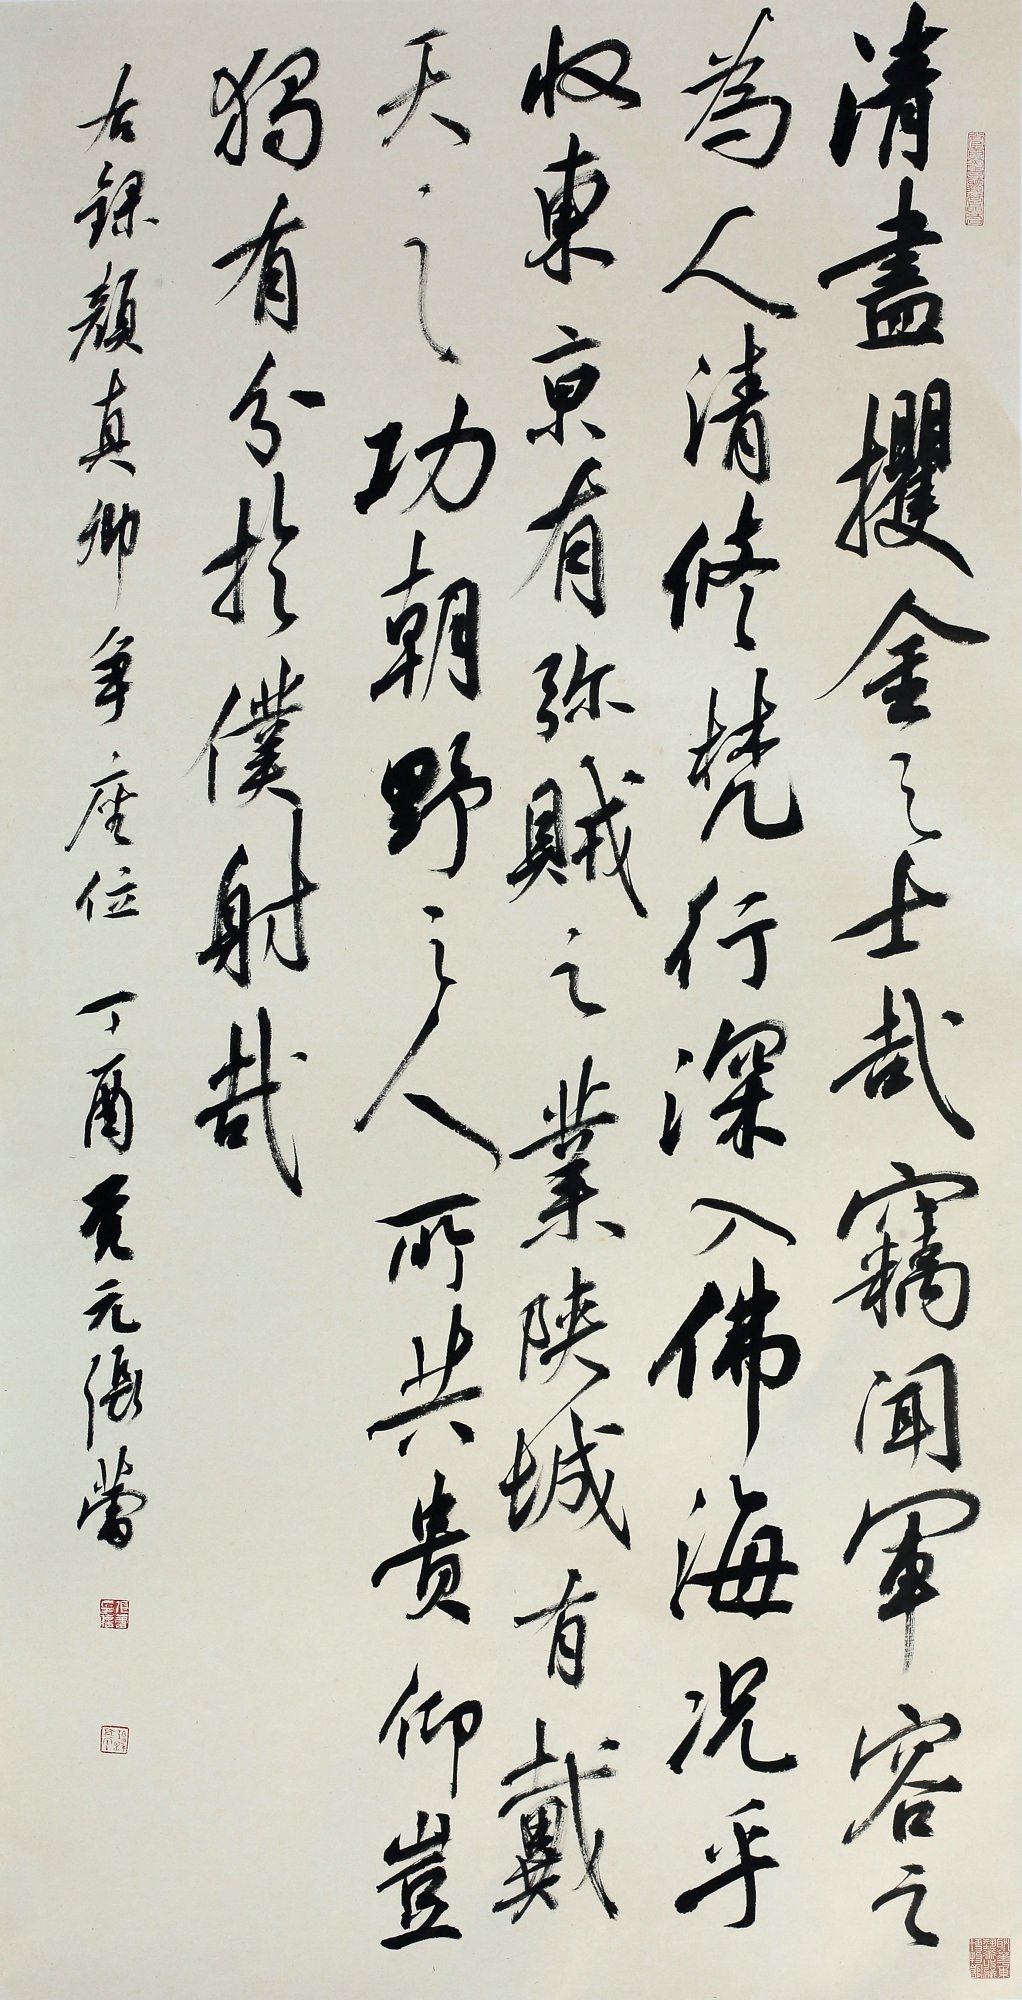 清盡攫金之士哉竊聞軍容之
為人清修梵行深入佛海况乎
收東京有弥賊之業陝城有戴
天之功朝野之人所共貴仰豈
獨有分於僕射哉
右錄顏真卿争座位 丁酉元張蕾